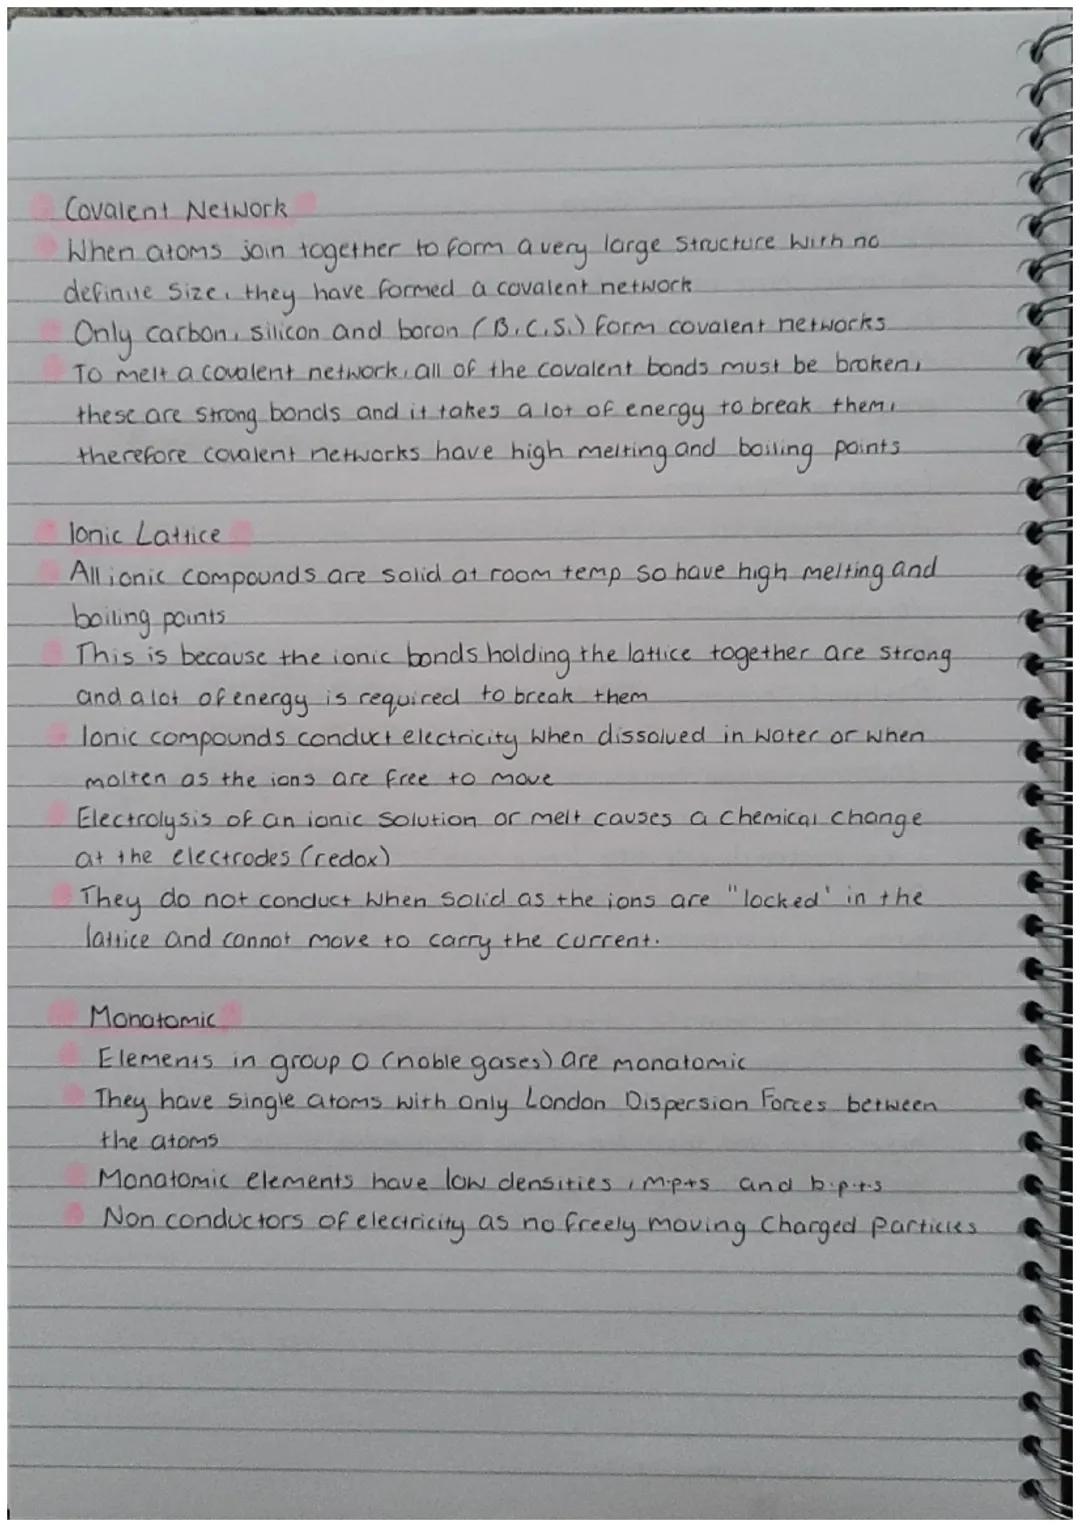 Covalent Network
When atoms join together to form a very large structure with no
definite size, they have formed a covalent network
Only carbon, silicon and boron (B, C, Si) form covalent networks
To melt a covalent network, all of the covalent bonds must be broken,
these are strong bonds and it takes a lot of energy to break them,
therefore covalent networks have high melting and boiling points
Ionic Lattice
All ionic compounds are solid at room temp so have high melting and
boiling points
This is because the ionic bonds holding the lattice together are strong
and a lot of energy is required to break them
Ionic compounds conduct electricity when dissolved in water or when
molten as the ions are free to move
Electrolysis of an ionic solution or melt causes a chemical change
at the electrodes (redox)
They do not conduct when solid as the ions are "locked' in the
lattice and cannot move to carry the current.
Monatomic
Elements in group 0 (noble gases) are monatomic
They have single atoms with only London Dispersion Forces between
the atoms
Monatomic elements have low densities, m.pts and b.p.t.s
Non conductors of electricity as no freely moving charged particles